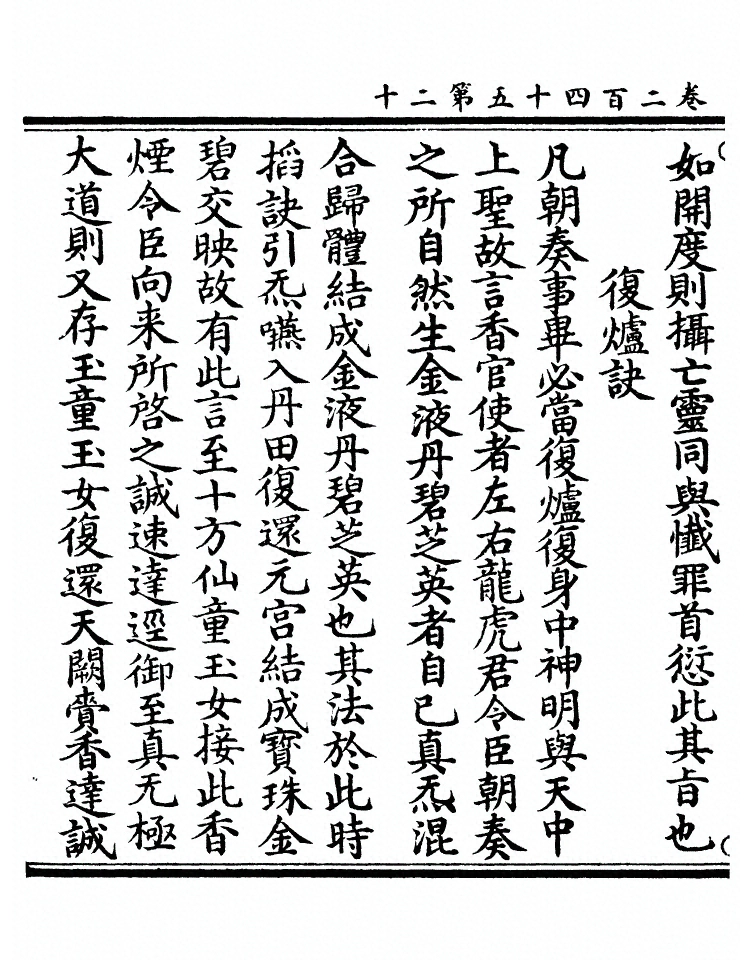 卷二百四十五第二十
如開度則攝亡靈同與懺罪首愆此其旨也
復爐訣
凡朝奏事畢必當復爐復身中神明與天中
上聖故言香官使者左右龍虎君令臣朝奏
之所自然生金液丹碧芝英者自己真炁混
合歸體結成金液丹碧芝英也其法於此時
搯訣引炁嚥入丹田復還元宮結成寶珠金
碧交映故有此言至十方仙童玉女接此香
煙令臣向来所啓之誠速達逕御至真无極
大道則又存玉童玉女復還天闕賫香達誠